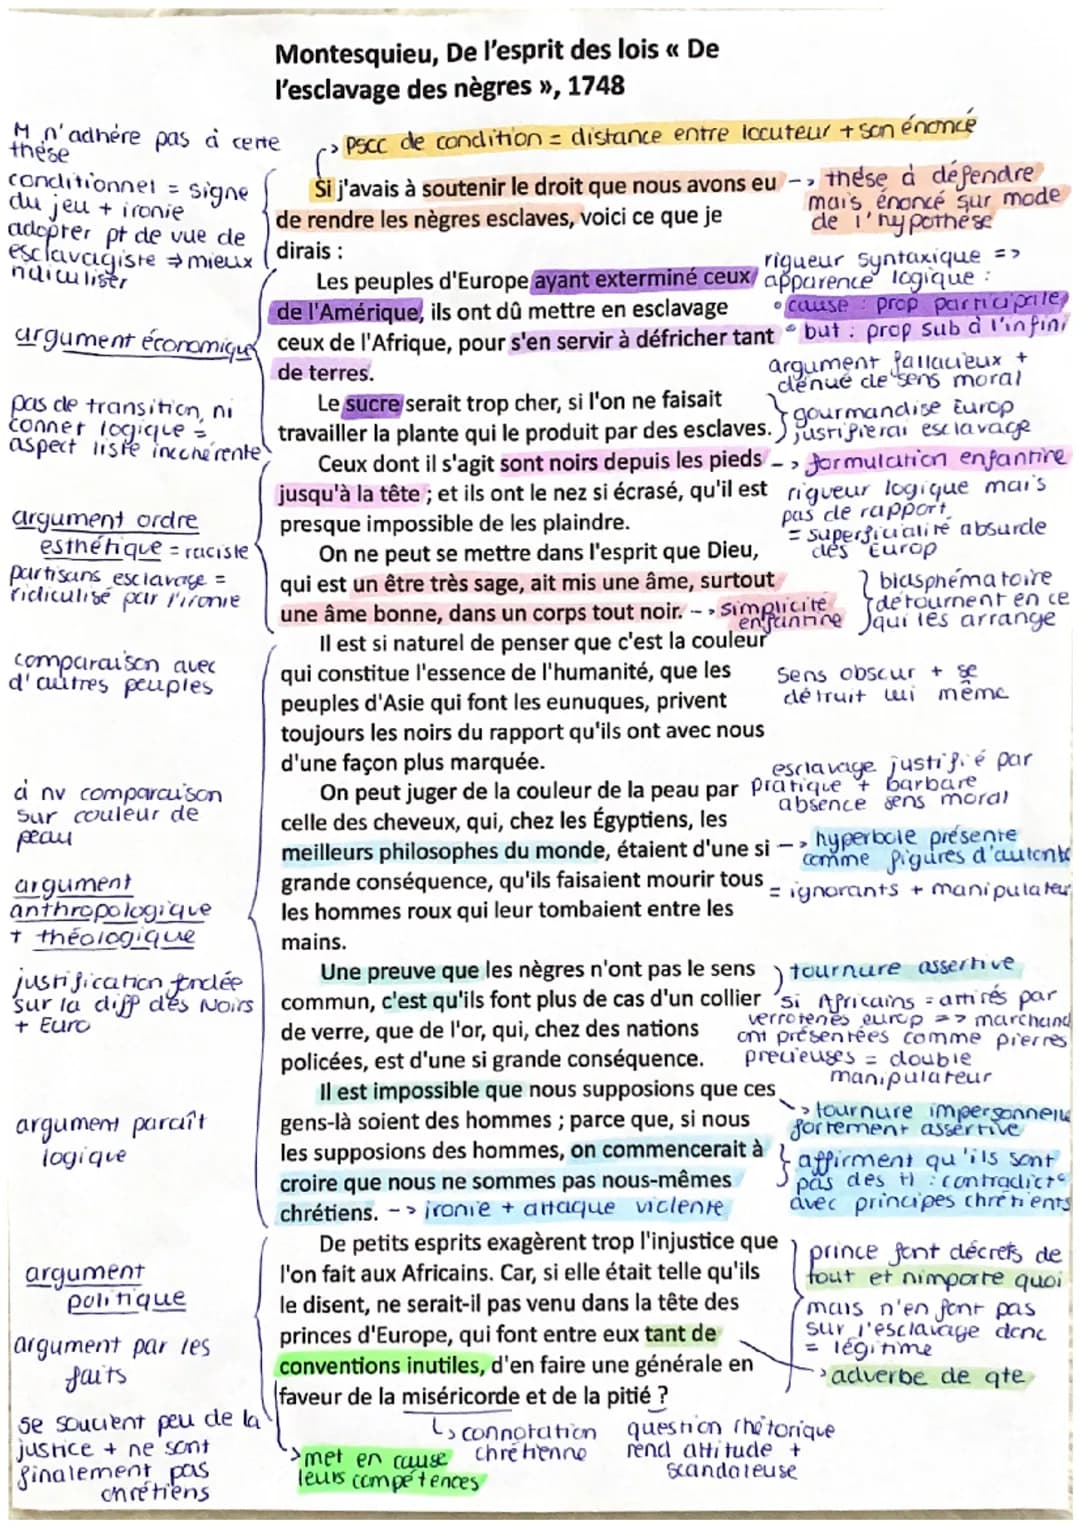 Montesquieu, De l'esprit des lois « De
l'esclavage des nègres », 1748
M n'adhère pas à cette
thèse
-> PSCC de condition = distance entre locuteur + son énoncé
conditionnel = signe
du jeu + ironie
adopter pt de vue de
esclavagiste => mieux
ridiculiser
Si j'avais à soutenir le droit que nous avons eu
de rendre les nègres esclaves, voici ce que je
dirais :
-> thèse à défendre
mais énoncé sur mode
de l'hypothèse
Les peuples d'Europe ayant exterminé ceux
de l'Amérique, ils ont dû mettre en esclavage
ceux de l'Afrique, pour s'en servir à défricher tant
de terres.
rigueur syntaxique =>
apparence logique :
• cause : prop participale
• but : prop sub à l'infini
argument économique
argument fallacieux +
dénué de sens moral
Le sucre serait trop cher, si l'on ne faisait
travailler la plante qui le produit par des esclaves.
gourmandise Europ
justifierai esclavage
pas de transition, ni
connet logique =
aspect liste incohérente
Ceux dont il s'agit sont noirs depuis les pieds
jusqu'à la tête ; et ils ont le nez si écrasé, qu'il est
presque impossible de les plaindre.
-> formulation enfantine
rigueur logique mais
pas de rapport
= superficialité absurde
des Europ
argument ordre
esthétique = raciste
partisans esclavage =
ridiculisé par l'ironie
On ne peut se mettre dans l'esprit que Dieu,
qui est un être très sage, ait mis une âme, surtout
une âme bonne, dans un corps tout noir.
-> simplicité
enfantine
blasphématoire
détournent en ce
qui les arrange
comparaison avec
d'autres peuples
Il est si naturel de penser que c'est la couleur
qui constitue l'essence de l'humanité, que les
peuples d'Asie qui font les eunuques, privent
toujours les noirs du rapport qu'ils ont avec nous
d'une façon plus marquée.
sens obscur + se
détruit lui même
esclavage justifié par
pratique + barbare
absence sens moral
à nv comparaison
sur couleur de
peau
On peut juger de la couleur de la peau par
celle des cheveux, qui, chez les Égyptiens, les
meilleurs philosophes du monde, étaient d'une si
grande conséquence, qu'ils faisaient mourir tous
les hommes roux qui leur tombaient entre les
mains.
-> hyperbole présente
comme figures d'autorité
= ignorants + manipulateur
argument
anthropologique
+ théologique
justification fondée
sur la diff des Noirs
+ Euro
Une preuve que les nègres n'ont pas le sens
commun, c'est qu'ils font plus de cas d'un collier
de verre, que de l'or, qui, chez des nations
policées, est d'une si grande conséquence.
tournure assertive
si Africains = attirés par
verroteries europ => marchand
ont présentées comme pierres
precieuses = double
manipulateur
argument paraît
logique
Il est impossible que nous supposions que ces
gens-là soient des hommes ; parce que, si nous
les supposions des hommes, on commencerait à
croire que nous ne sommes pas nous-mêmes
chrétiens. -> ironie + attaque violente
-> tournure impersonnelle
fortement assertive
affirment qu'ils sont
pas des H : contradict°
avec principes chrétiens
argument
politique
argument par les
faits
De petits esprits exagèrent trop l'injustice que
l'on fait aux Africains. Car, si elle était telle qu'ils
le disent, ne serait-il pas venu dans la tête des
princes d'Europe, qui font entre eux tant de
conventions inutiles, d'en faire une générale en
faveur de la miséricorde et de la pitié ?
prince font décrets de
tout et nimporte quoi
mais n'en font pas
sur l'esclavage donc
= légitime
-> adverbe de qte
se soucient peu de la
justice + ne sont
finalement pas
chrétiens
-> met en cause
leurs compétences
-> connotation
chrétienne
question rhétorique
rend attitude +
scandaleuse